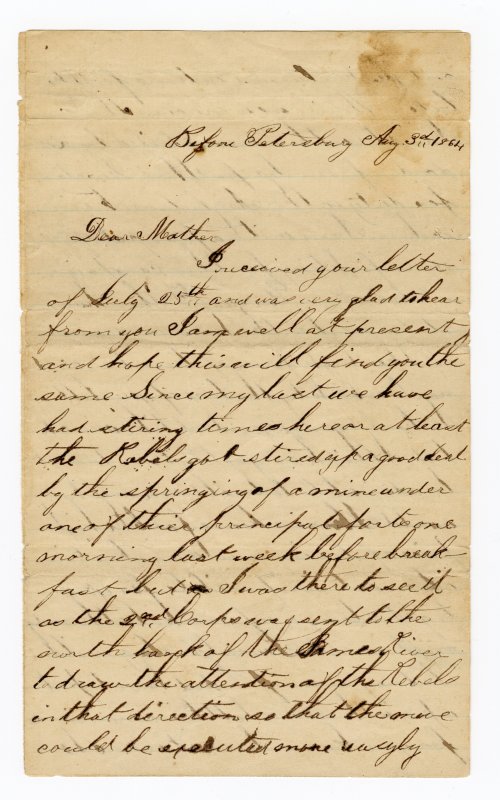 Before Petersburg Aug 3rd 1864
Dear Mother
I received your letter
of July 25th and was very glad to hear
from you I am well at present
and hope this will find you the
same Since my last we have
had stiring times here or at least
the Rebels got stired up a good deal
by the springing of a mine under
one of thier principal forts one
morning last week before break
fast but I was there to see it
as the 2nd Corps was sent to the
north bank of the James River
to draw the attention of the Rebels
in that direction so that the move
could be executed more easyly